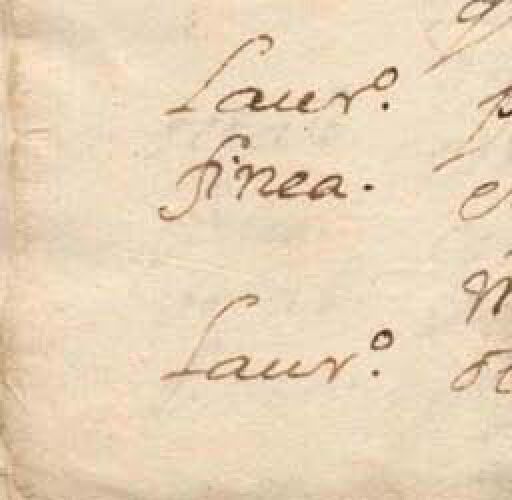 Laurº.
finea.
Laurº.